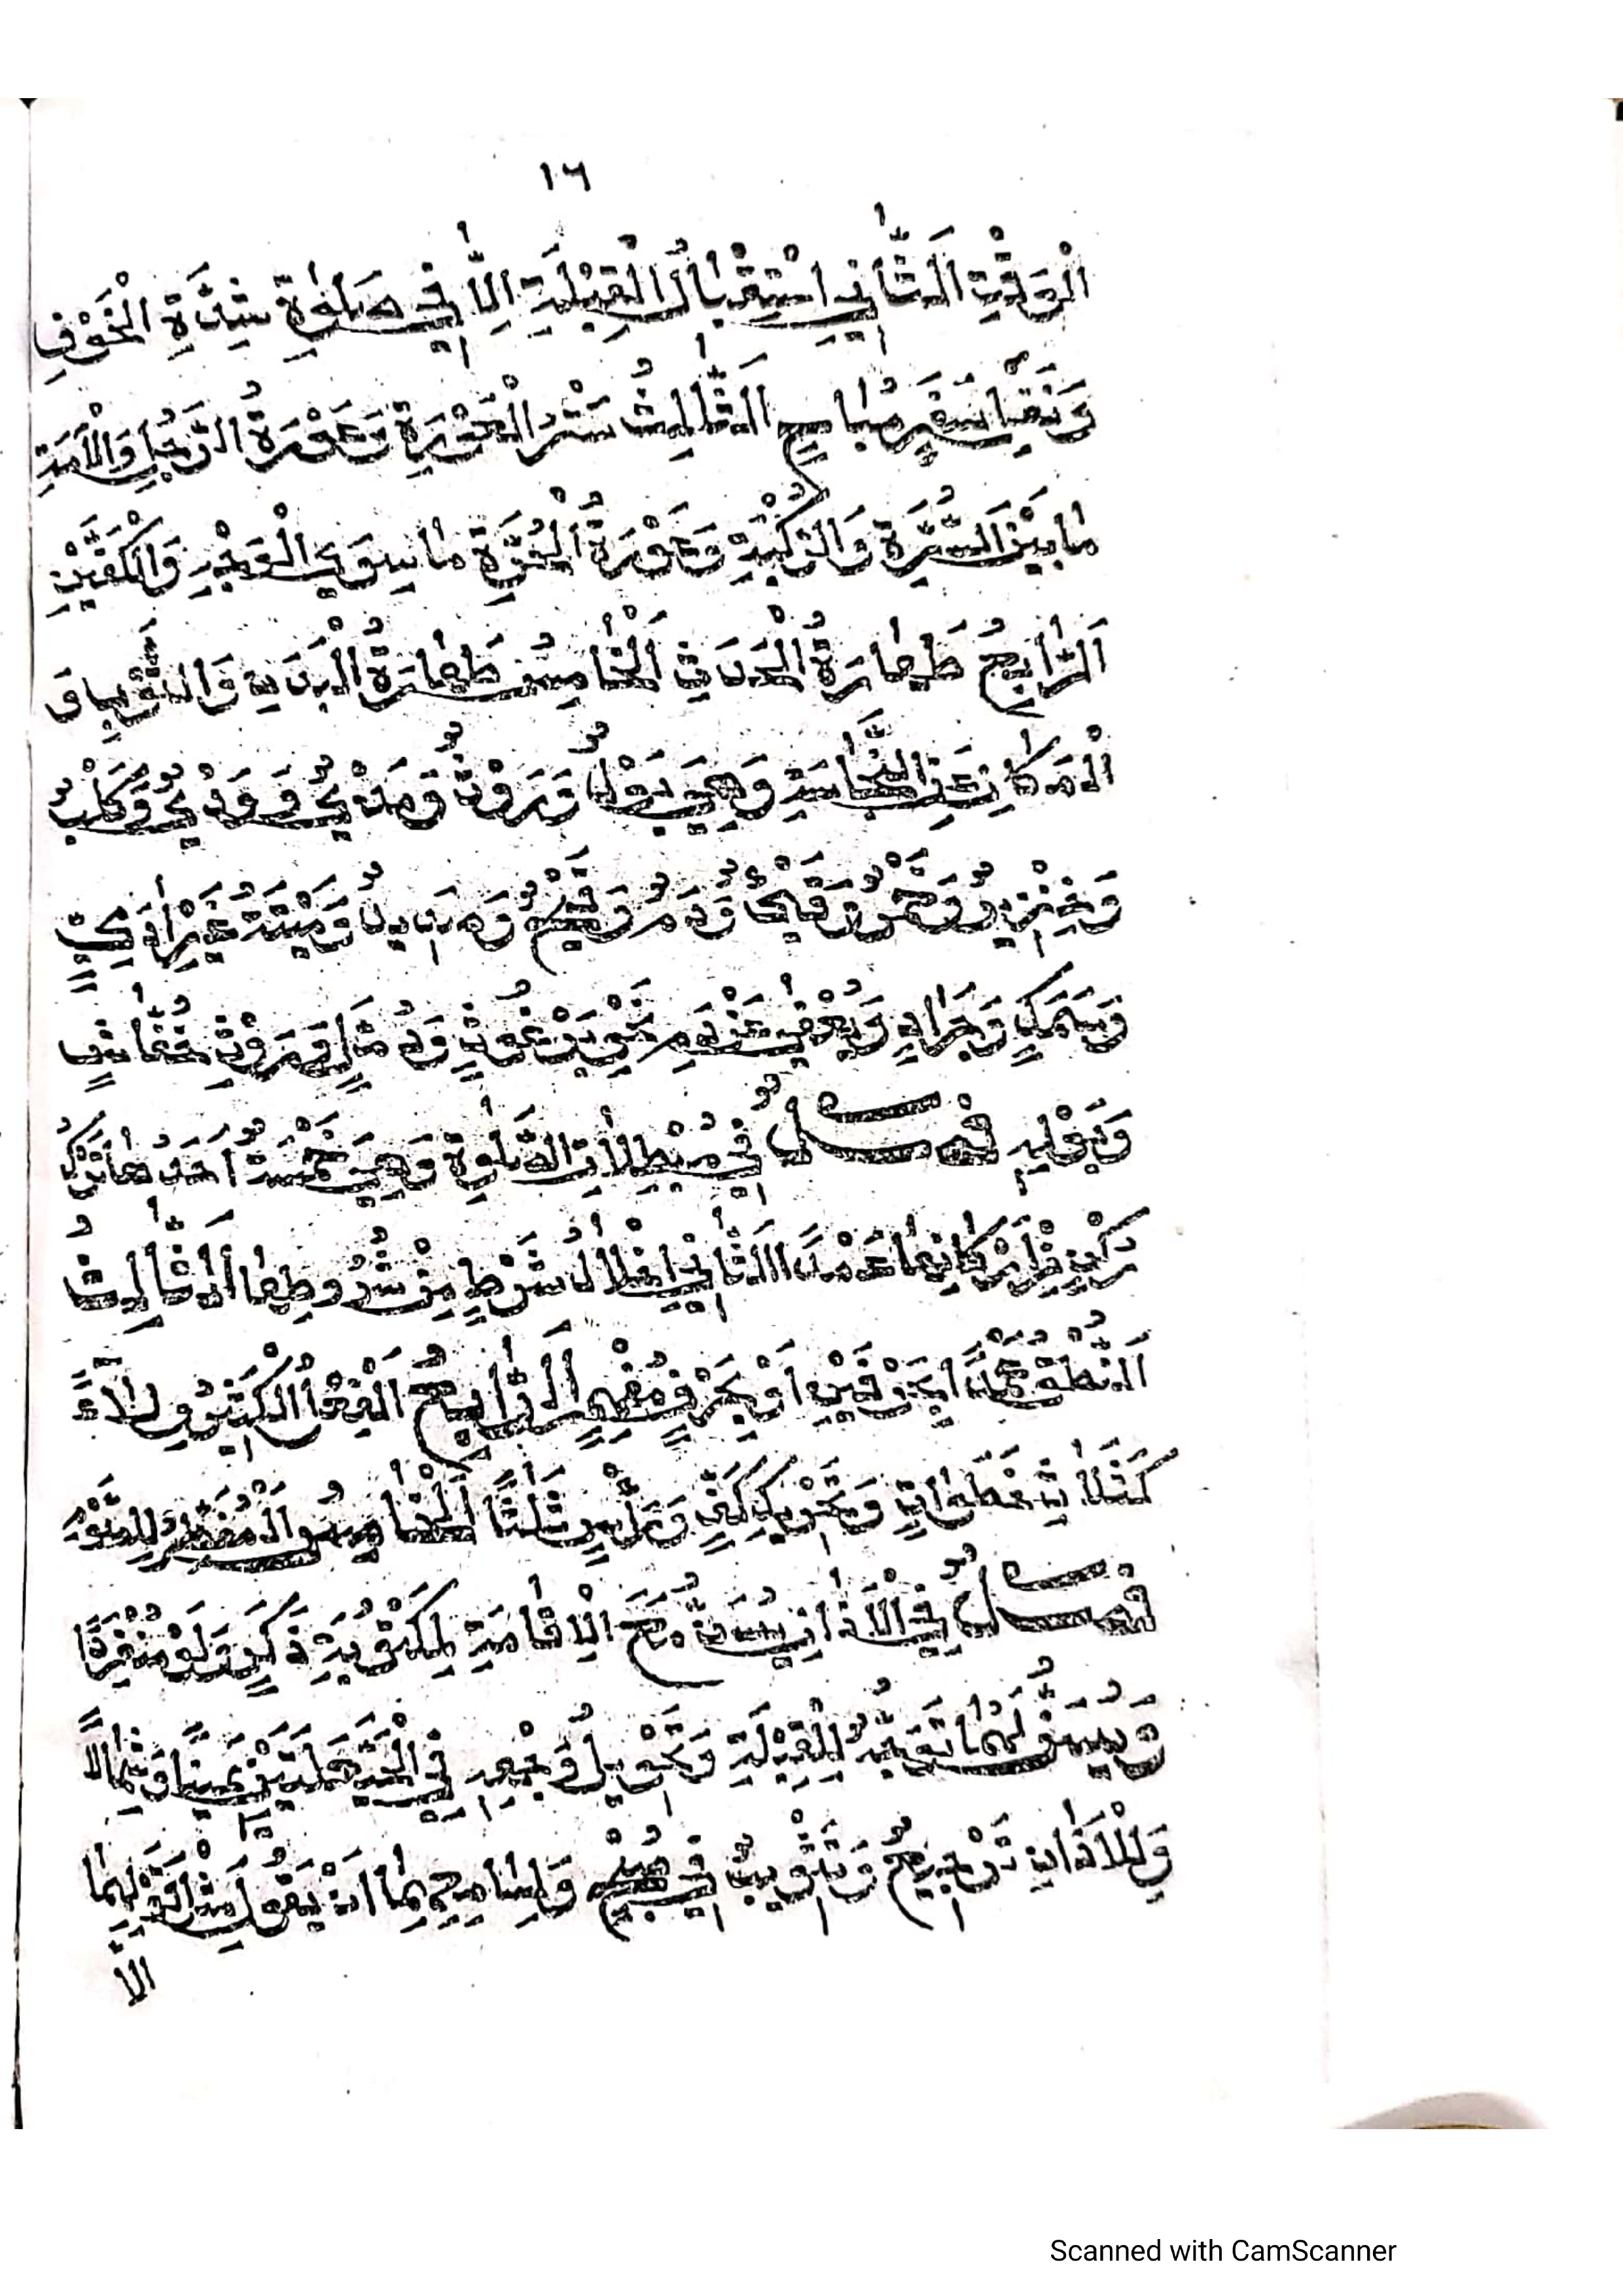 ١٦
الْوَقْتِ اَلثَّانِي اسْتِقْبَالُ الْقِبْلَةِ اِلَّا فِي صَلٰوةِ شِدَّةِ الْخَوْفِ
وَنَفْلِ سَفَرٍ مُبَاحٍ اَلثَّالِثُ سَتْرُ الْعَوْرَةِ وَعَوْرَةُ الرَّجُلِ وَالْاَمَةِ
مَا بَيْنَ السُّرَّةِ وَالرُّكْبَةِ وَعَوْرَةُ الْحُرَّةِ مَا سِوَى الْوَجْهِ وَالْكَفَّيْنِ
اَلرَّابِعُ طَهَارَةُ الْحَدَثِ اَلْخَامِسُ طَهَارَةُ الْبَدَنِ وَالثَّوْبِ وَ
الْمَكَانِ عَنِ النَّجَاسَةِ وَهِيَ بَوْلٌ وَرَوْثٌ وَمَذْيٌ وَوَدْيٌ وَكَلْبٌ
وَخِنْزِيرٌ وَخَمْرٌ وَقَيْءٌ وَدَمٌ وَقَيْحٌ وَصَدِيدٌ وَمَيْتَةُ غَيْرِ اٰدَمِيٍّ
وَسَمَكٍ وَجَرَادٍ وَيُعْفٰى عَنْ دَمِ نَحْوِ بَرْغُوثٍ وَدُمَّلٍ وَرَوْثِ خُفَّاشٍ
وَبَوْلِهِ فَصْلٌ فِي مُبْطِلَاتِ الصَّلٰوةِ وَهِيَ خَمْسَةٌ اَحَدُهَا تَرْكُ
رُكْنٍ مِنْ اَرْكَانِهَا عَمْدًا اَلثَّانِي اِخْلَالُ شَرْطٍ مِنْ شُرُوطِهَا اَلثَّالِثُ
اَلنُّطْقُ عَمْدًا بِحَرْفَيْنِ اَوْ بِحَرْفٍ مُفْهِمٍ اَلرَّابِعُ الْفِعْلُ الْكَثِيرُ وِلَاءً
كَثَلَاثِ خَطَوَاتٍ وَتَحْرِيكِ كَفٍّ وَرَأْسٍ ثَلٰثًا اَلْخَامِسُ الْمُفَطِّرُ لِلصَّوْمِ
فَصْلٌ فِي الْاَذَانِ يُسَنُّ مَعَ الْاِقَامَةِ لِمَكْتُوبَةِ ذَكَرٍ وَلَوْ مُنْفَرِدًا
وَيُسَنُّ لَهُمَا تَوَجُّهُ الْقِبْلَةِ وَتَحْوِيلُ وَجْهِهِ فِي الْحَيْعَلَتَيْنِ يَمِينًا وَشِمَالًا
وَلِلْاَذَانِ تَرْجِيعٌ وَتَثْوِيبٌ فِي صُبْحٍ وَلِسَامِعِهِمَا اَنْ يَقُولَ مِثْلَ قَوْلِهِمَا
اِلَّا
Scanned with CamScanner